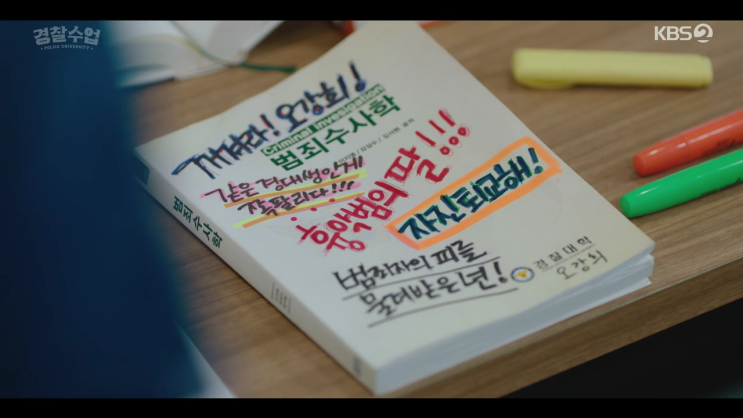 경찰수업
POLICE UNIVERSITY
KBS 2
개뻔다! 오강희!!
Criminal Investigation
범죄수사학
같은 경대생인게
쪽팔리다!!!
흉악범의 딸!!!
자진퇴교해!
범죄자의 피를
물려받은 년!
경찰대학
오강희
범죄수사학